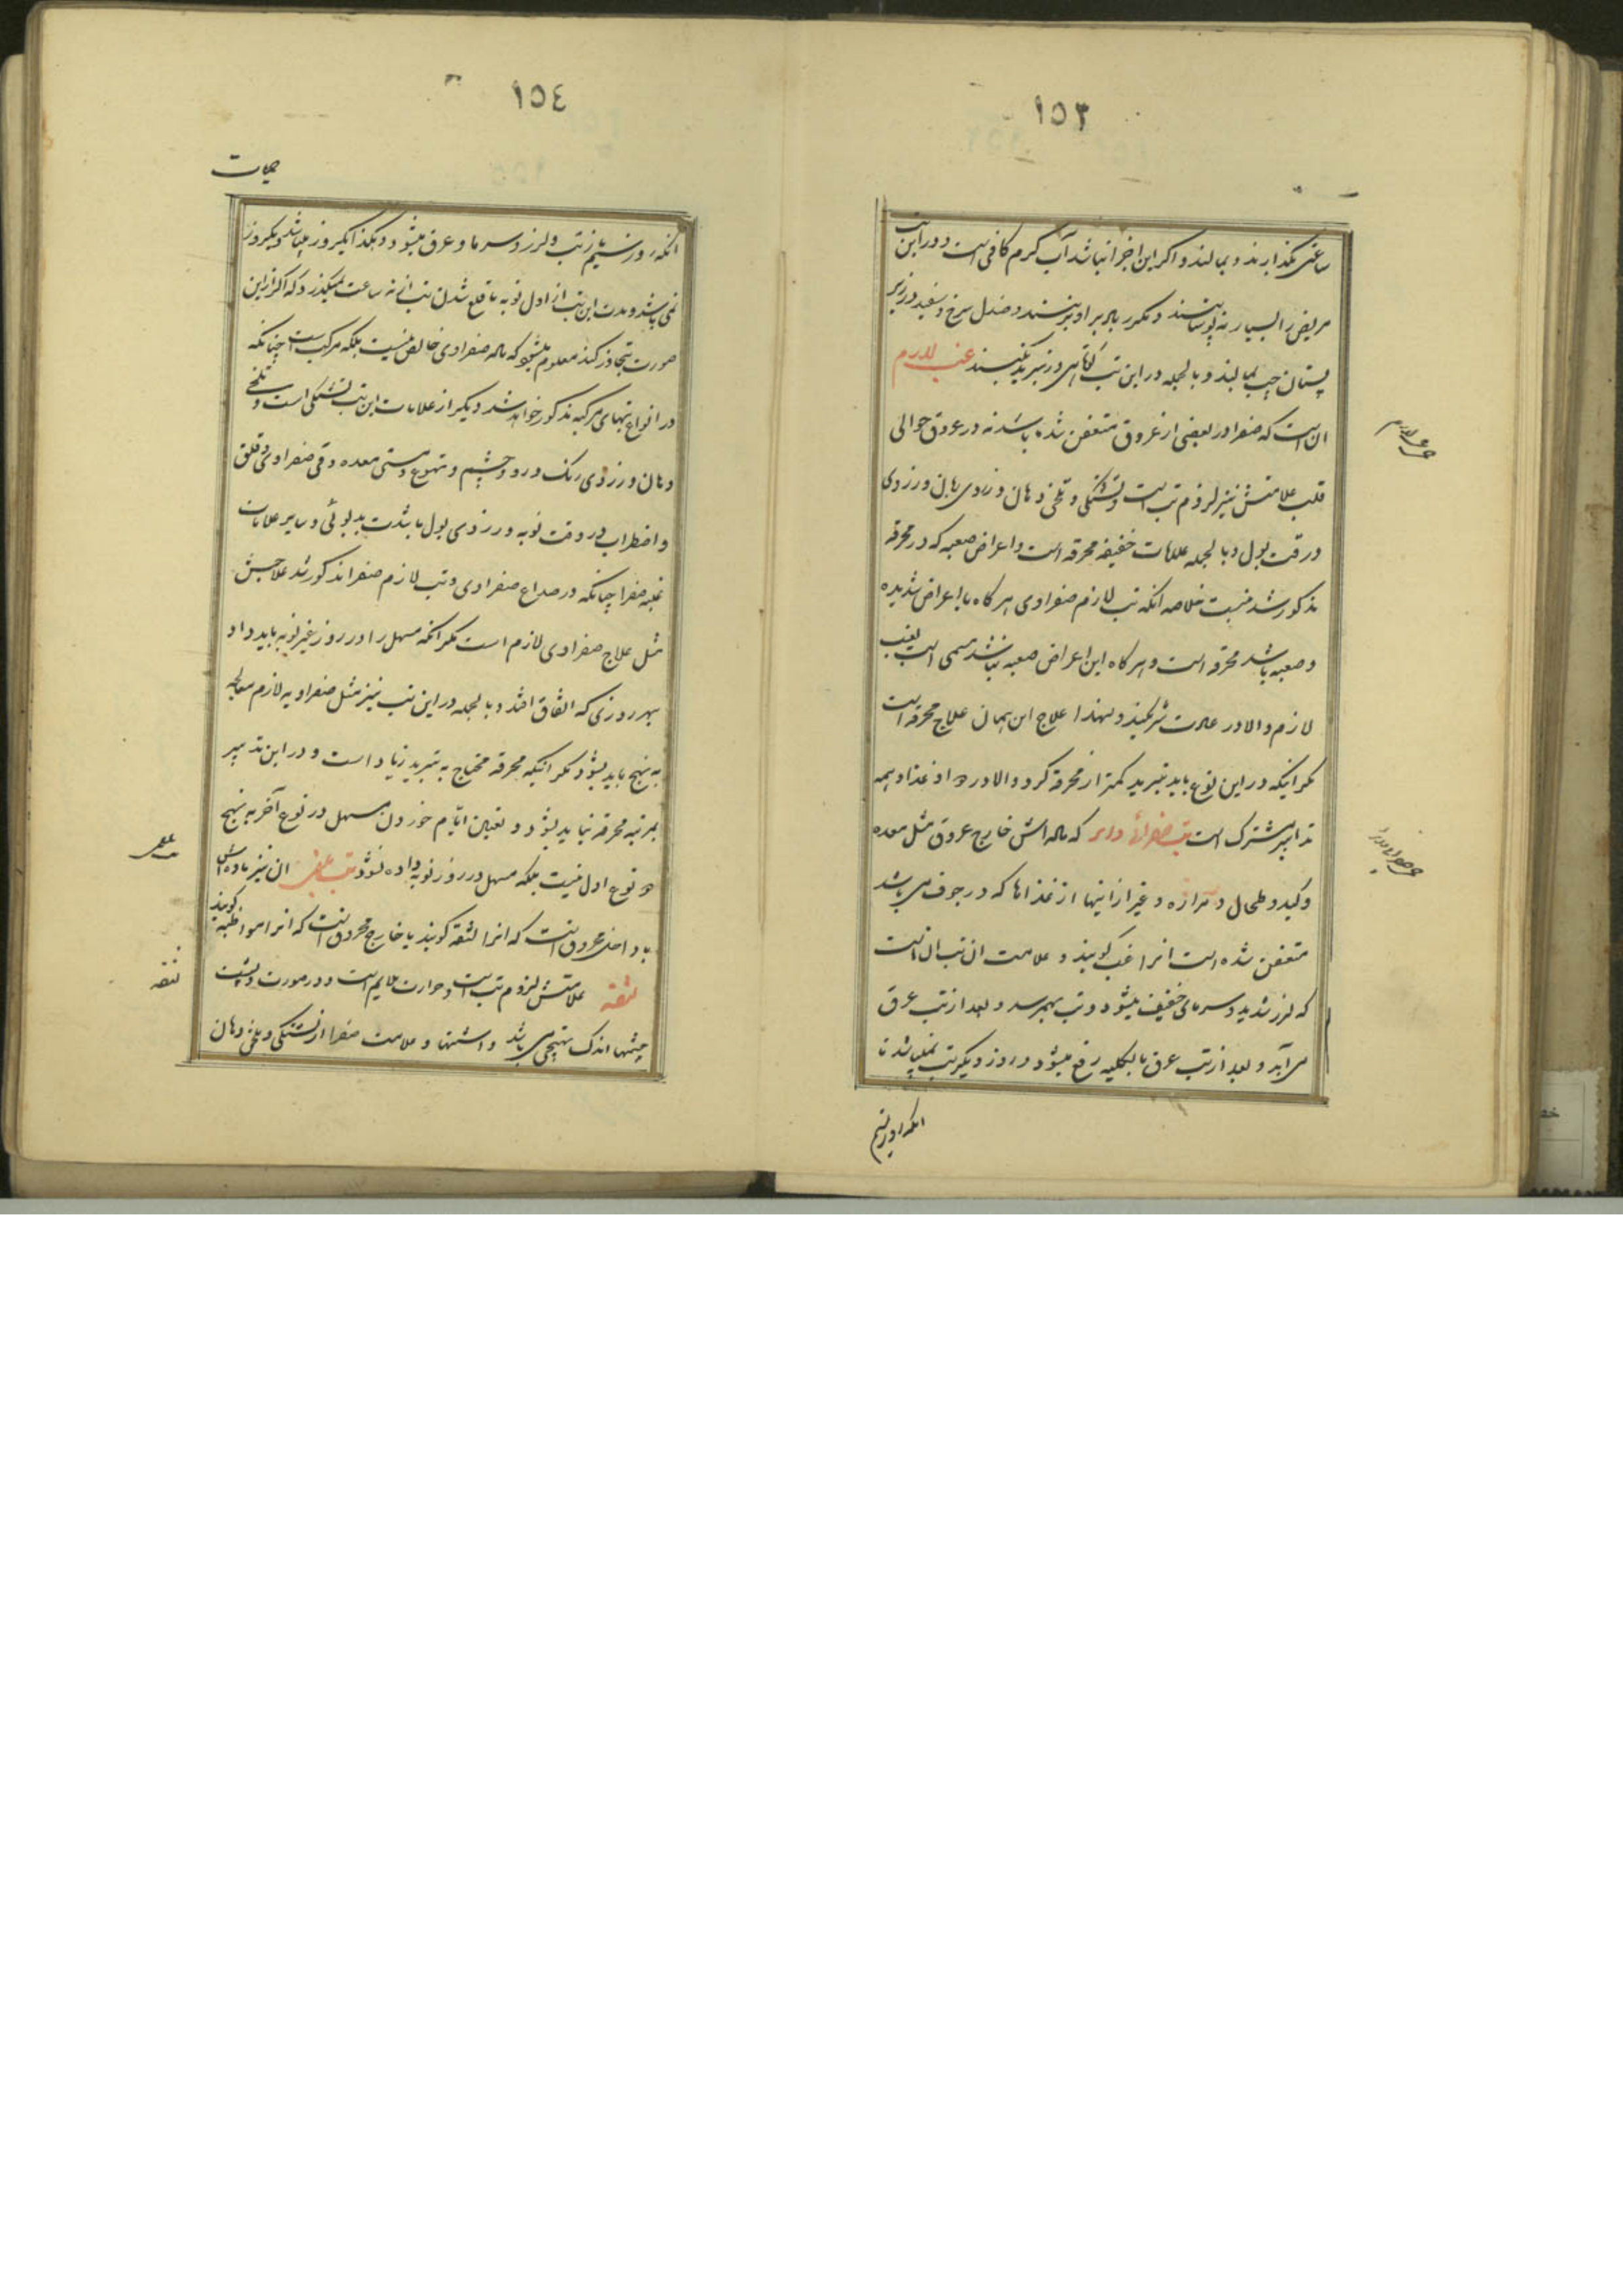 ١٥٣
ساعتی بگذارند و بمالند و اگر این اجزا نباشد آب گرم کافی است و در این تب
مریض را بسیار نپوشانند و مکرر باد بر او بزنند و صندل سرخ و سفید در زیر
پستان چپ بمالند و بالجمله در این تب کوتاهی در تبرید نکنند غب لازم
آن است که صفرا در بعضی از عروق متعفن شده باشد نه در عروق حوالی
قلب علامتش نیز لزوم تب است و تشنگی و تلخی دهان و زردی زبان و زردی
و رقت بول و بالجمله علامات خفیفه محرقه است و اعراض صعبه که در محرقه
مذکور شد نیست خلاصه آنکه تب لازم صفراوی هرگاه با اعراض شدیده
و صعبه باشد محرقه است و هرگاه این اعراض صعبه نباشد مسمی است بغب
لازم و الا در علامت شریکند و لهذا علاج این همان علاج محرقه است
مگر اینکه در این نوع باید تبرید کمتر از محرقه کرد و الا در دوا و غذا و همه
تدابیر مشترک است تب صفرائی دایر که ماده اش خارج عروق مثل معده
و کبد و طحال و مراره و غیر از اینها از غذاها که در جوف می باشد
متعفن شده است آنرا غب گویند و علامت آن تب آن است
که لرز شدید و سرمای خفیف میشود و تب بهم میرسد و بعد از تب عرق
می آید و بعد از تب عرق بالکلیه رفع میشود و روز دیگر تب نمیباشد تا
آنکه روز سیم
١٥٤
حمیات
آنکه روز سیم باز تب و لرز و سرما و عرق میشود و هکذا یکروز میباشد و یکروز
نمی باشد و مدت این تب از اول نوبه تا قلع شدن تب از نه ساعت نمیگذرد که اگر از این
صورت تجاوز کند معلوم میشود که ماده صفراوی خالص نیست بلکه مرکب است چنانکه
در انواع تبهای مرکبه مذکور خواهد شد و دیگر از علامات این تب تشنگی است و تلخی
دهان و زردی رنگ و رو و چشم و تهوع و سستی معده و قی صفراوی و قلق
و اضطراب در وقت نوبه و زردی بول با شدت بدبوئی و سایر علامات
غلبه صفرا چنانکه در صداع صفراوی و تب لازم صفرا مذکور شد علاجش
مثل علاج صفراوی لازم است مگر آنکه مسهل را در روز غیر نوبه باید داد
بهر روزی که اتفاق افتد و بالجمله در این تب نیز مثل صفراویه لازم معالجه
به نهج باید بشود مگر اینکه محرقه محتاج به تبرید زیاد است و در این تدبیر
بمرتبه محرقه نباید بشود و تعیین ایام خوردن مسهل در نوع آخر به نهج
دو نوع اول نیست بلکه مسهل در روز نوبه داده نشود تب بلغمی آن نیز ماده اش
یا داخل عروق است که آنرا لثقه گویند یا خارج عروق است که آنرا مواظبه گویند
لثقه علامتش لزوم تب است و حرارت ملایم است و در صورت و پشت
چشمها اندک تهیجی می باشد و اشتها و علامت صفرا از تشنگی و تلخی دهان
لثقه